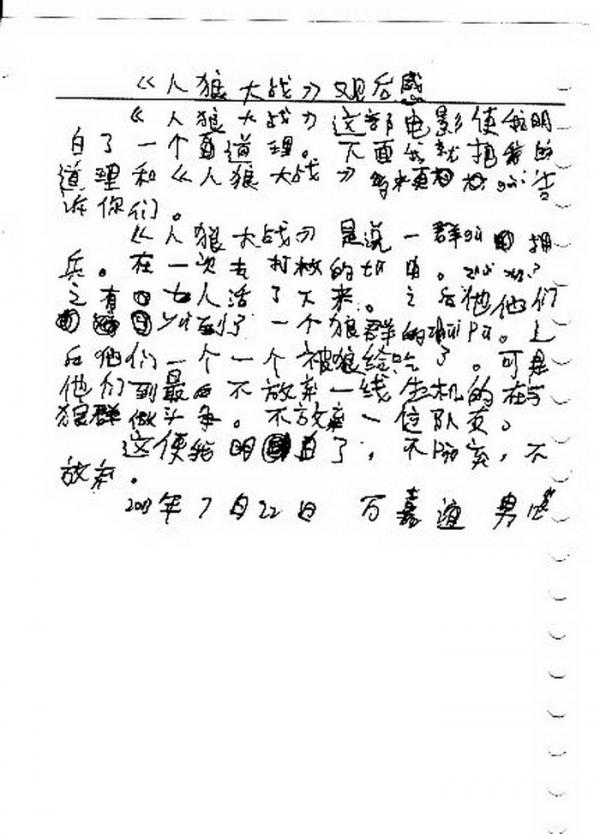 《人狼大战》观后感
《人狼大战》这部电影使我明
白了一个真道理。下面我就把我的
道理和《人狼大战》告
诉你们。
《人狼大战》是说一群 拥
兵。在一次去打猎的切由。
之有 七人活了下来。之后他他们
到了一个狼群的 。之
后他们一个一个被狼给吃了。可是
他们到最后不放弃一线生机的在与
狼群做斗争。不放弃一位队友。
这使我明白了，不 弃，不
放弃。
2013年7月22日 万嘉谊 男